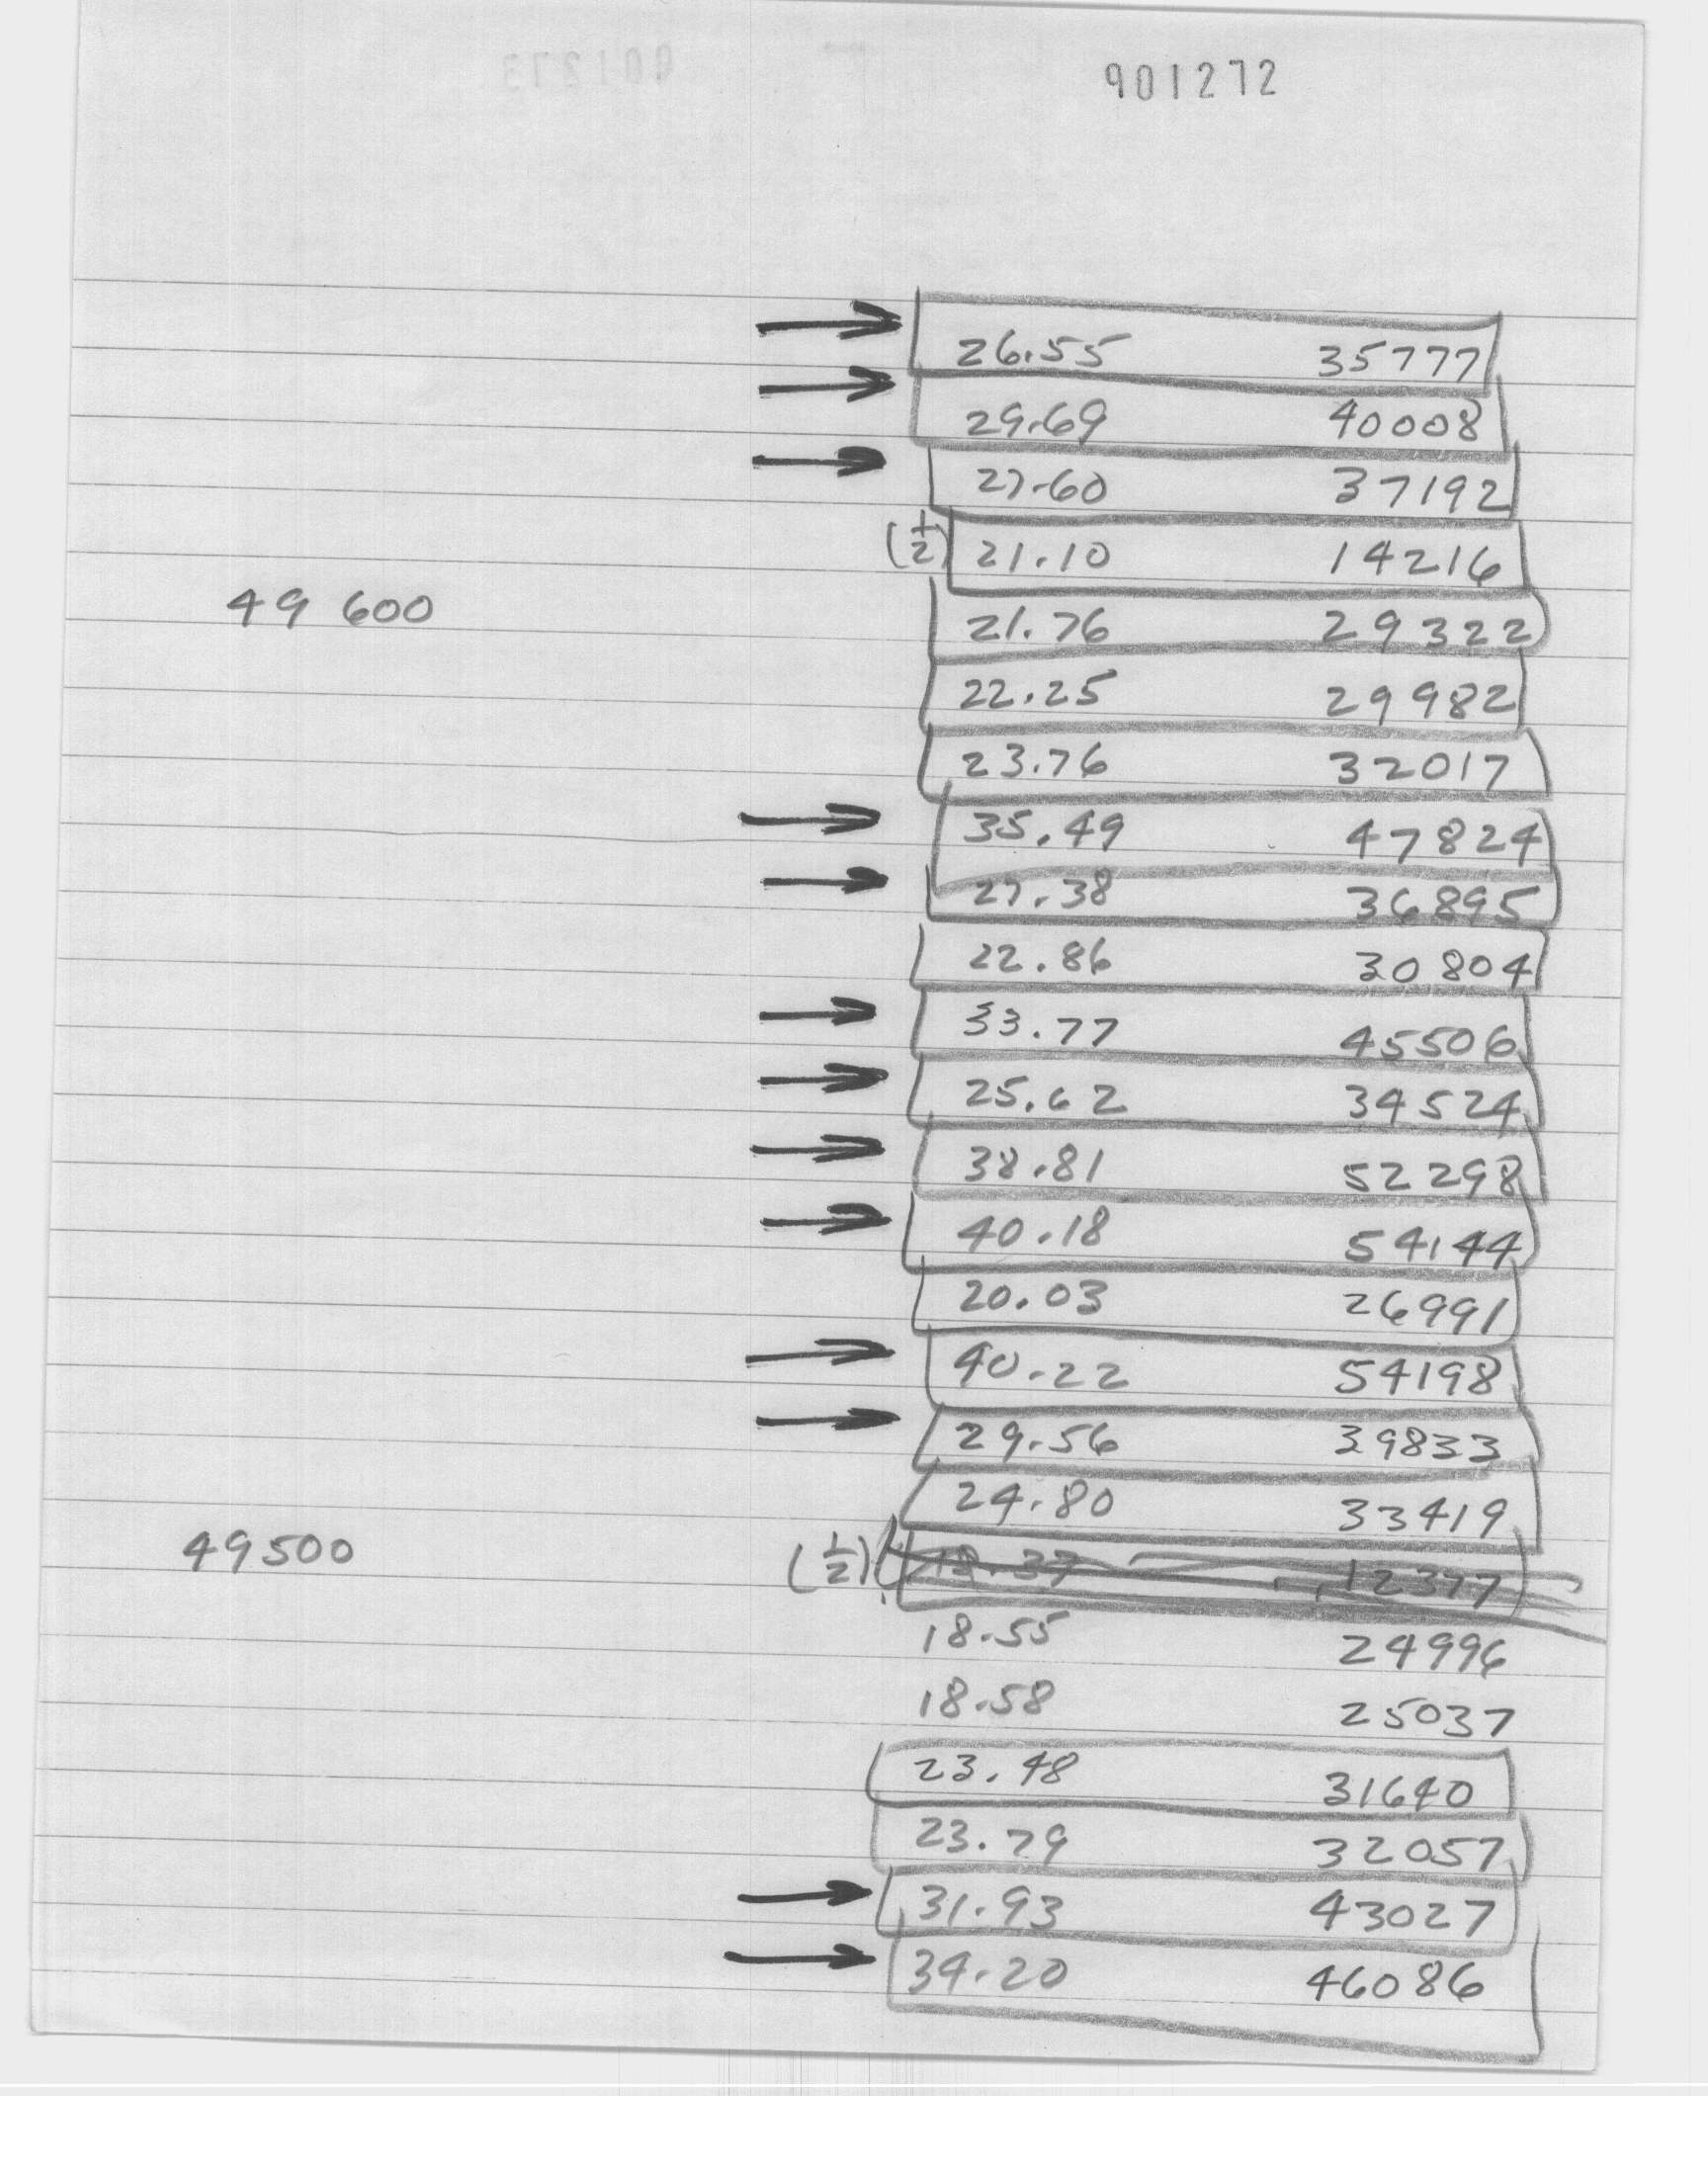 901272
26.55 35777
29.69 40008
27.60 37192
(1/2) 21.10 14216
49 600 21.76 29322
22.25 29982
23.76 32017
35.49 47824
27.38 36895
22.86 30804
33.77 45506
25.62 34524
38.81 52298
40.18 54144
20.03 26991
40.22 54198
29.56 39833
24.80 33419
49500 (1/2) 18.37 12377
18.55 24996
18.58 25037
23.48 31640
23.79 32057
31.93 43027
34.20 46086